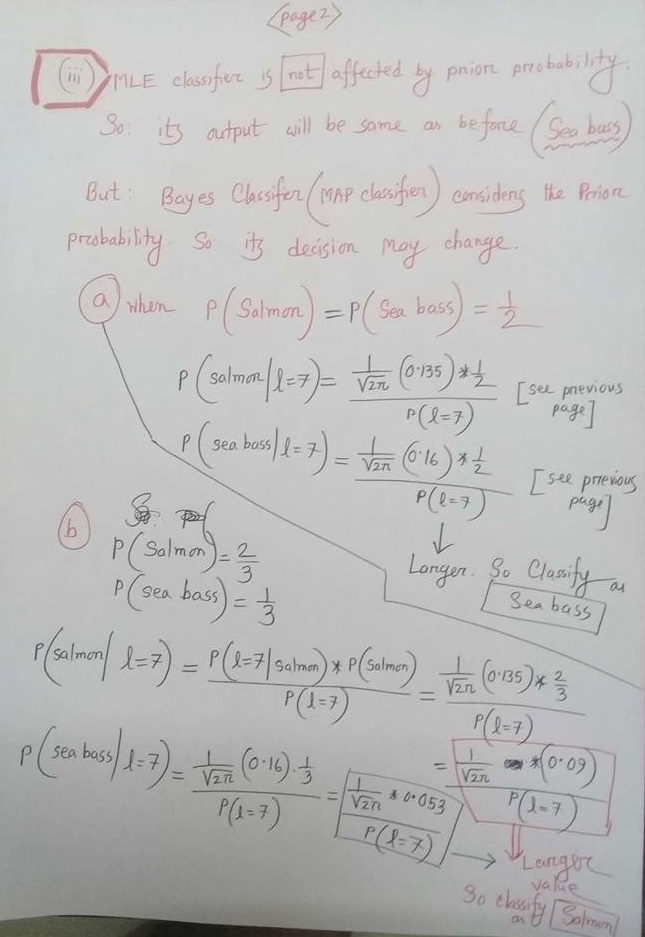 <page 2>
(iii) MLE classifier is not affected by prior probability.
So: its output will be same as before (Sea bass)
But: Bayes Classifer (MAP classifier) considers the Prior
probability. So its decision may change.
(a) when P(Salmon) = P(Sea bass) = 1/2
P(salmon/l=7) = 1/√2π (0.135) * 1/2 / P(l=7) [see previous page]
P(sea bass/l=7) = 1/√2π (0.16) * 1/2 / P(l=7) [see previous page]
↓
Larger. So Classify as
Sea bass
(b)
P(Salmon) = 2/3
P(sea bass) = 1/3
P(salmon/l=7) = P(l=7/salmon) * P(salmon) / P(l=7) = 1/√2π (0.135) * 2/3 / P(l=7)
= 1/√2π * (0.09) / P(l=7)
P(sea bass/l=7) = 1/√2π (0.16) . 1/3 / P(l=7) = 1/√2π * 0.053 / P(l=7)
→ ⇓ Larger
value
So classify
as Salmon